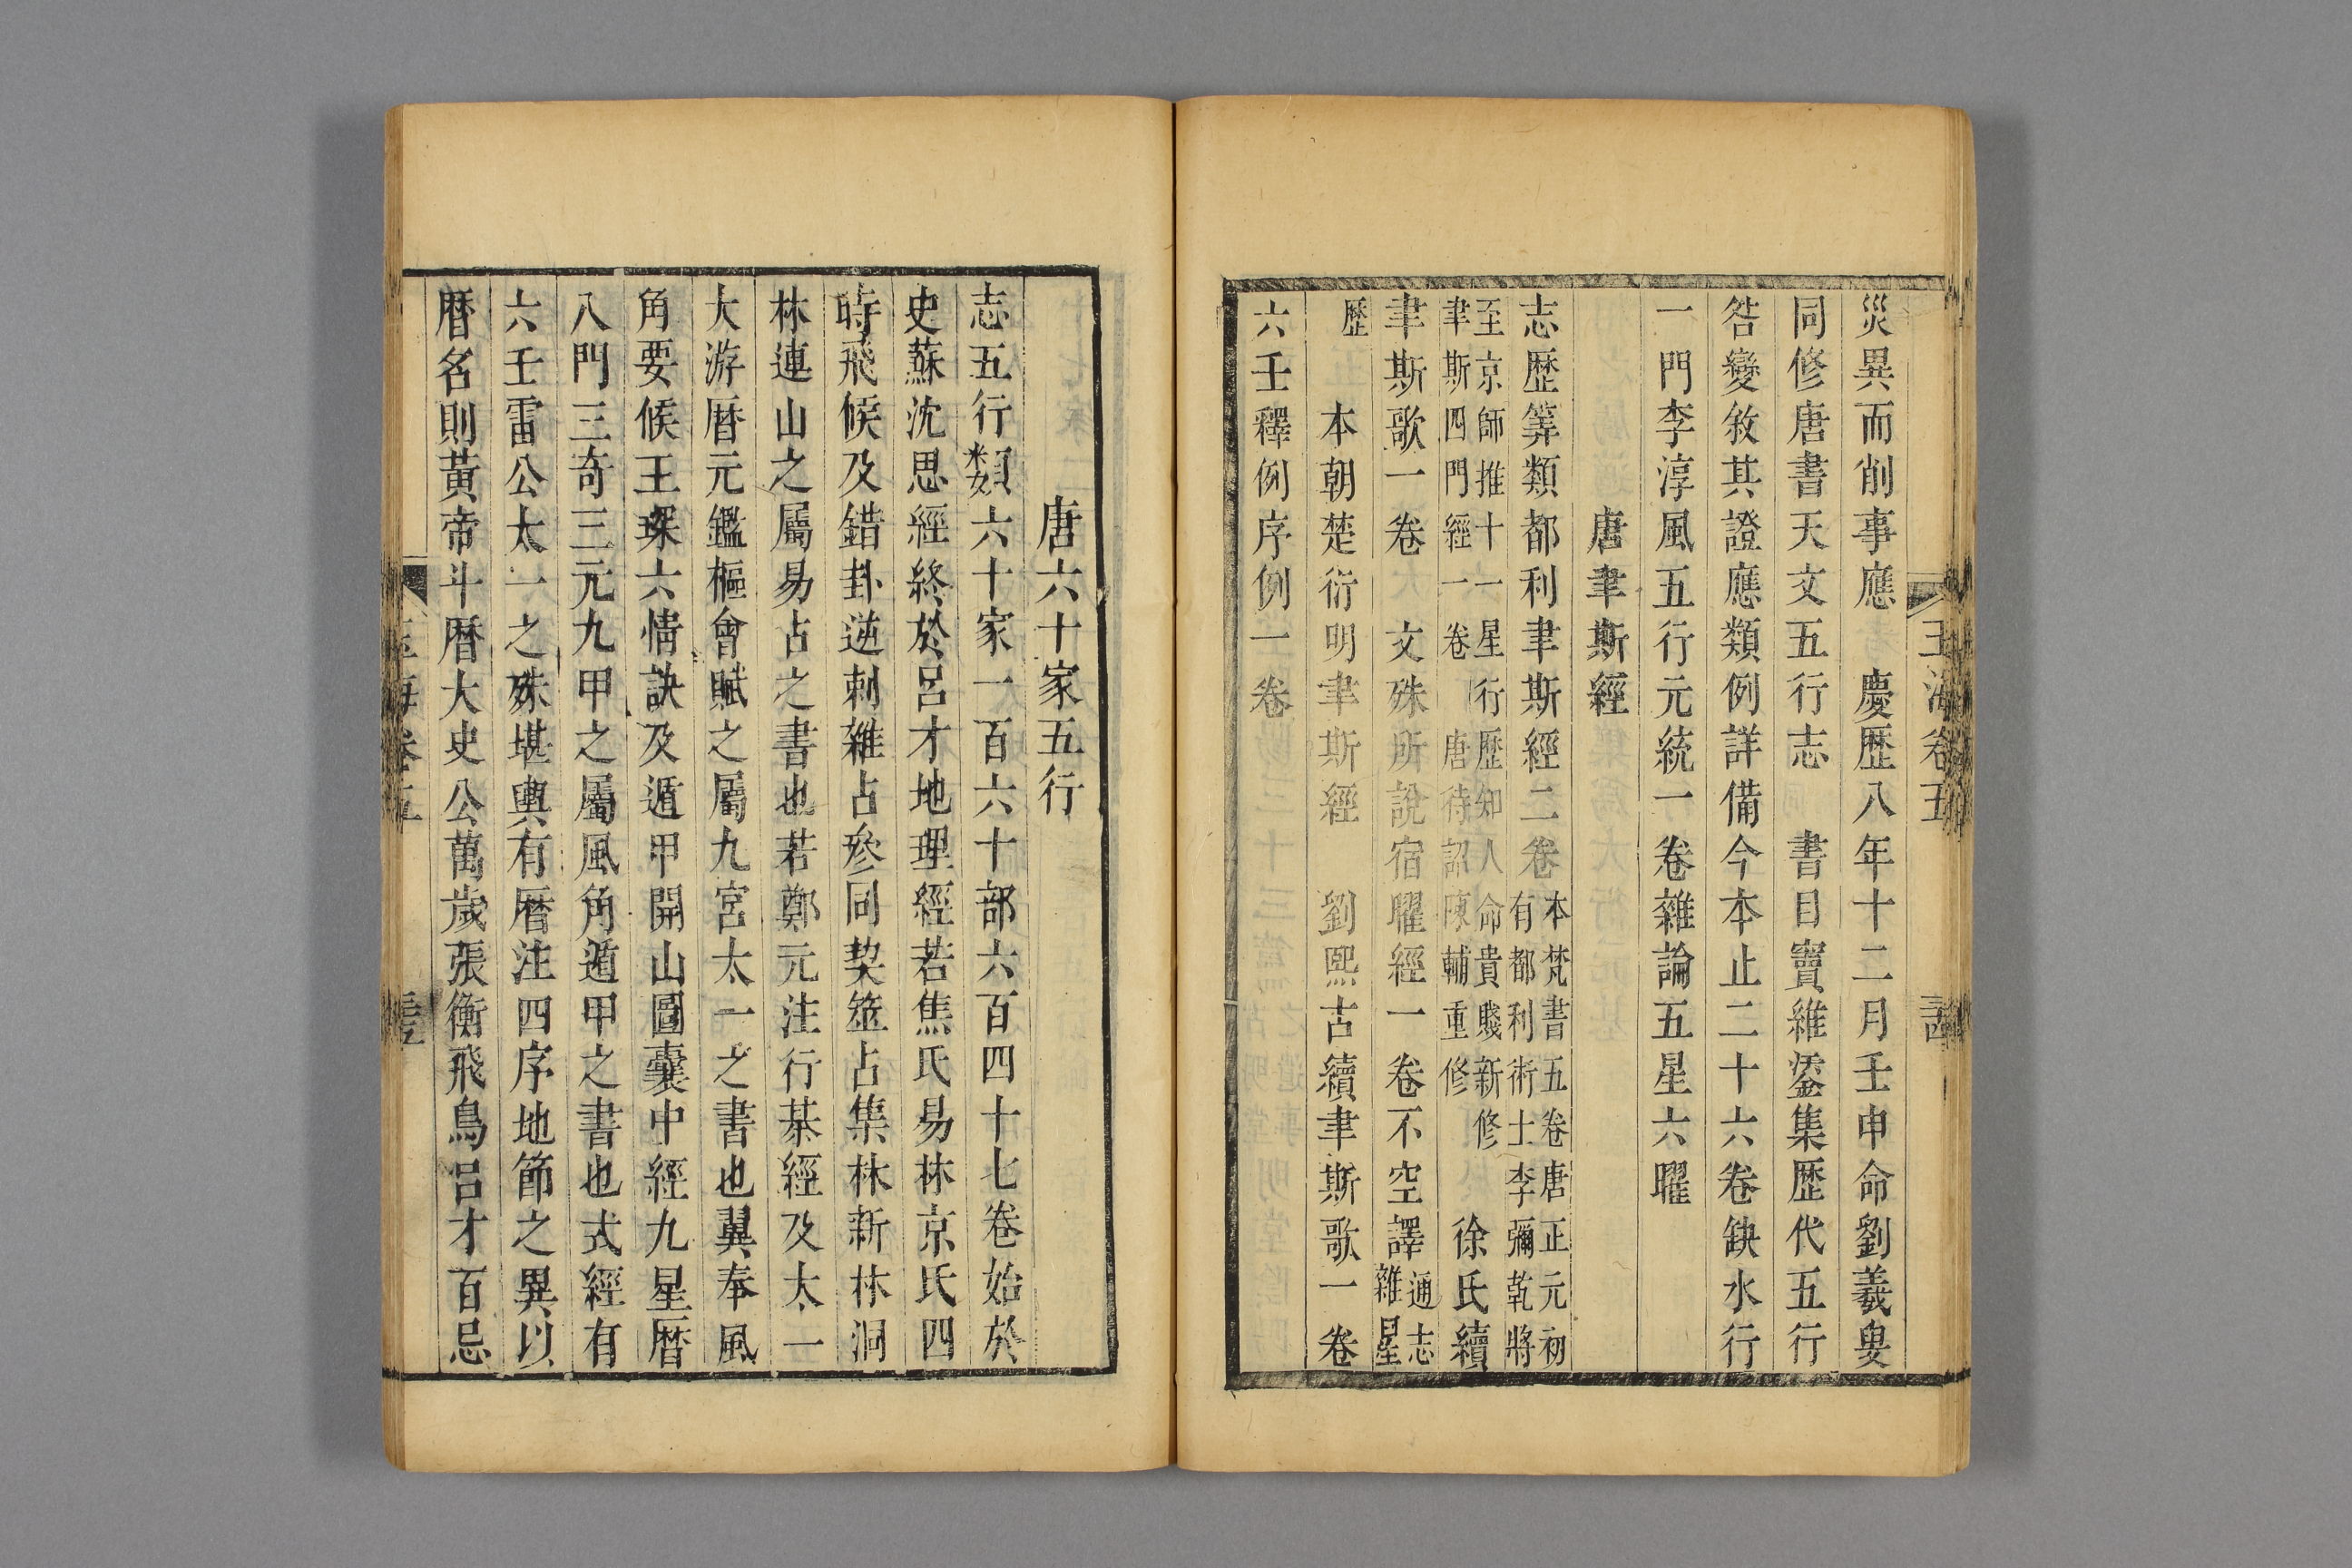 玉海卷五
災異而削事應　慶歴八年十二月壬申命劉羲叟
同修唐書天文五行志　書目竇維鋈集歴代五行
咎變敘其證應類例詳備今本止二十六卷缺水行
一門李淳風五行元統一卷雜論五星六曜
唐聿斯經
志歴筭類都利聿斯經二卷本梵書五卷唐正元初
有都利術士李彌乾將
至京師推十一星行歷知人命貴賤新修
聿斯四門經一卷　唐待詔陳輔重修
徐氏續
聿斯歌一卷　文殊所說宿曜經一卷不空譯通志
雜星
歷
本朝楚衍明聿斯經　劉熙古續聿斯歌一卷
六壬釋例序例一卷
唐六十家五行
志五行類六十家一百六十部六百四十七卷始於
史蘇沈思經終於呂才地理經若焦氏易林京氏四
時飛候及錯卦逆刺雜占參同契筮占集林新林洞
林連山之屬易占之書也若鄭元注行棊經及太一
大游曆元鑑樞會賦之屬九宮太一之書也翼奉風
角要候王琛六情訣及遁甲開山圖囊中經九星曆
八門三奇三元九甲之屬風角遁甲之書也式經有
六壬雷公太一之殊堪輿有曆注四序地節之異以
曆名則黃帝斗曆大史公萬歲張衡飛鳥呂才百忌